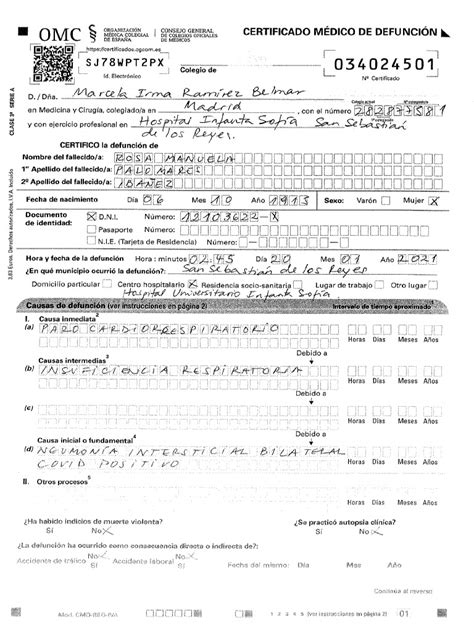 OMC
ORGANIZACIÓN MÉDICA COLEGIAL DE ESPAÑA
CONSEJO GENERAL DE COLEGIOS OFICIALES DE MÉDICOS
CERTIFICADO MÉDICO DE DEFUNCIÓN
https://certificados.cgcom.es
SJ78WPT2PX
Id. Electrónico
Colegio de
034024501
Nº Certificado
CLASE 3ª SERIE A
D. / Dña. Marcela Irma Ramírez Belmar
en Medicina y Cirugía, colegiado/a en Madrid, con el número
y con ejercicio profesional en Hospital Infanta Sofía San Sebastián
de los Reyes.
CERTIFICO la defunción de
Nombre del fallecido/a: ROSA MANUELA
1er Apellido del fallecido/a: PALOMARES
2º Apellido del fallecido/a: IBAÑEZ
Fecha de nacimiento Día 06 Mes 10 Año 1913 Sexo: Varón Mujer X
Documento de identidad: X D.N.I. Número: 12103622-X
Pasaporte Número:
N.I.E. (Tarjeta de Residencia) Número:
Hora y fecha de la defunción Hora : minutos 02:45 Día 20 Mes 01 Año 2021
¿En qué municipio ocurrió la defunción?: San Sebastián de los Reyes
Domicilio particular Centro hospitalario X Residencia socio-sanitaria Lugar de trabajo Otro lugar
Hospital Universitario Infanta Sofía
Causas de defunción (ver instrucciones en página 2) Intervalo de tiempo aproximado
I. Causa inmediata2
(a) PARO CARDIORRESPIRATORIO
Horas Días Meses Años
Debido a
Causas intermedias3
(b) INSUFICIENCIA RESPIRATORIA
Horas Días Meses Años
Debido a
(c)
Horas Días Meses Años
Debido a
Causa inicial o fundamental4
(d) NEUMONÍA INTERSTICIAL BILATERAL
COVID POSITIVO
Horas Días Meses Años
II. Otros procesos5
Horas Días Meses Años
¿Ha habido indicios de muerte violenta?
Sí No X
¿Se practicó autopsia clínica?
Sí No X
¿La defunción ha ocurrido como consecuencia directa o indirecta de?:
Accidente de tráfico Sí No X Accidente laboral Sí No X Fecha del mismo: Día Mes Año
Continúa al reverso
1 2 3 4 5 (ver instrucciones en página 2) 01